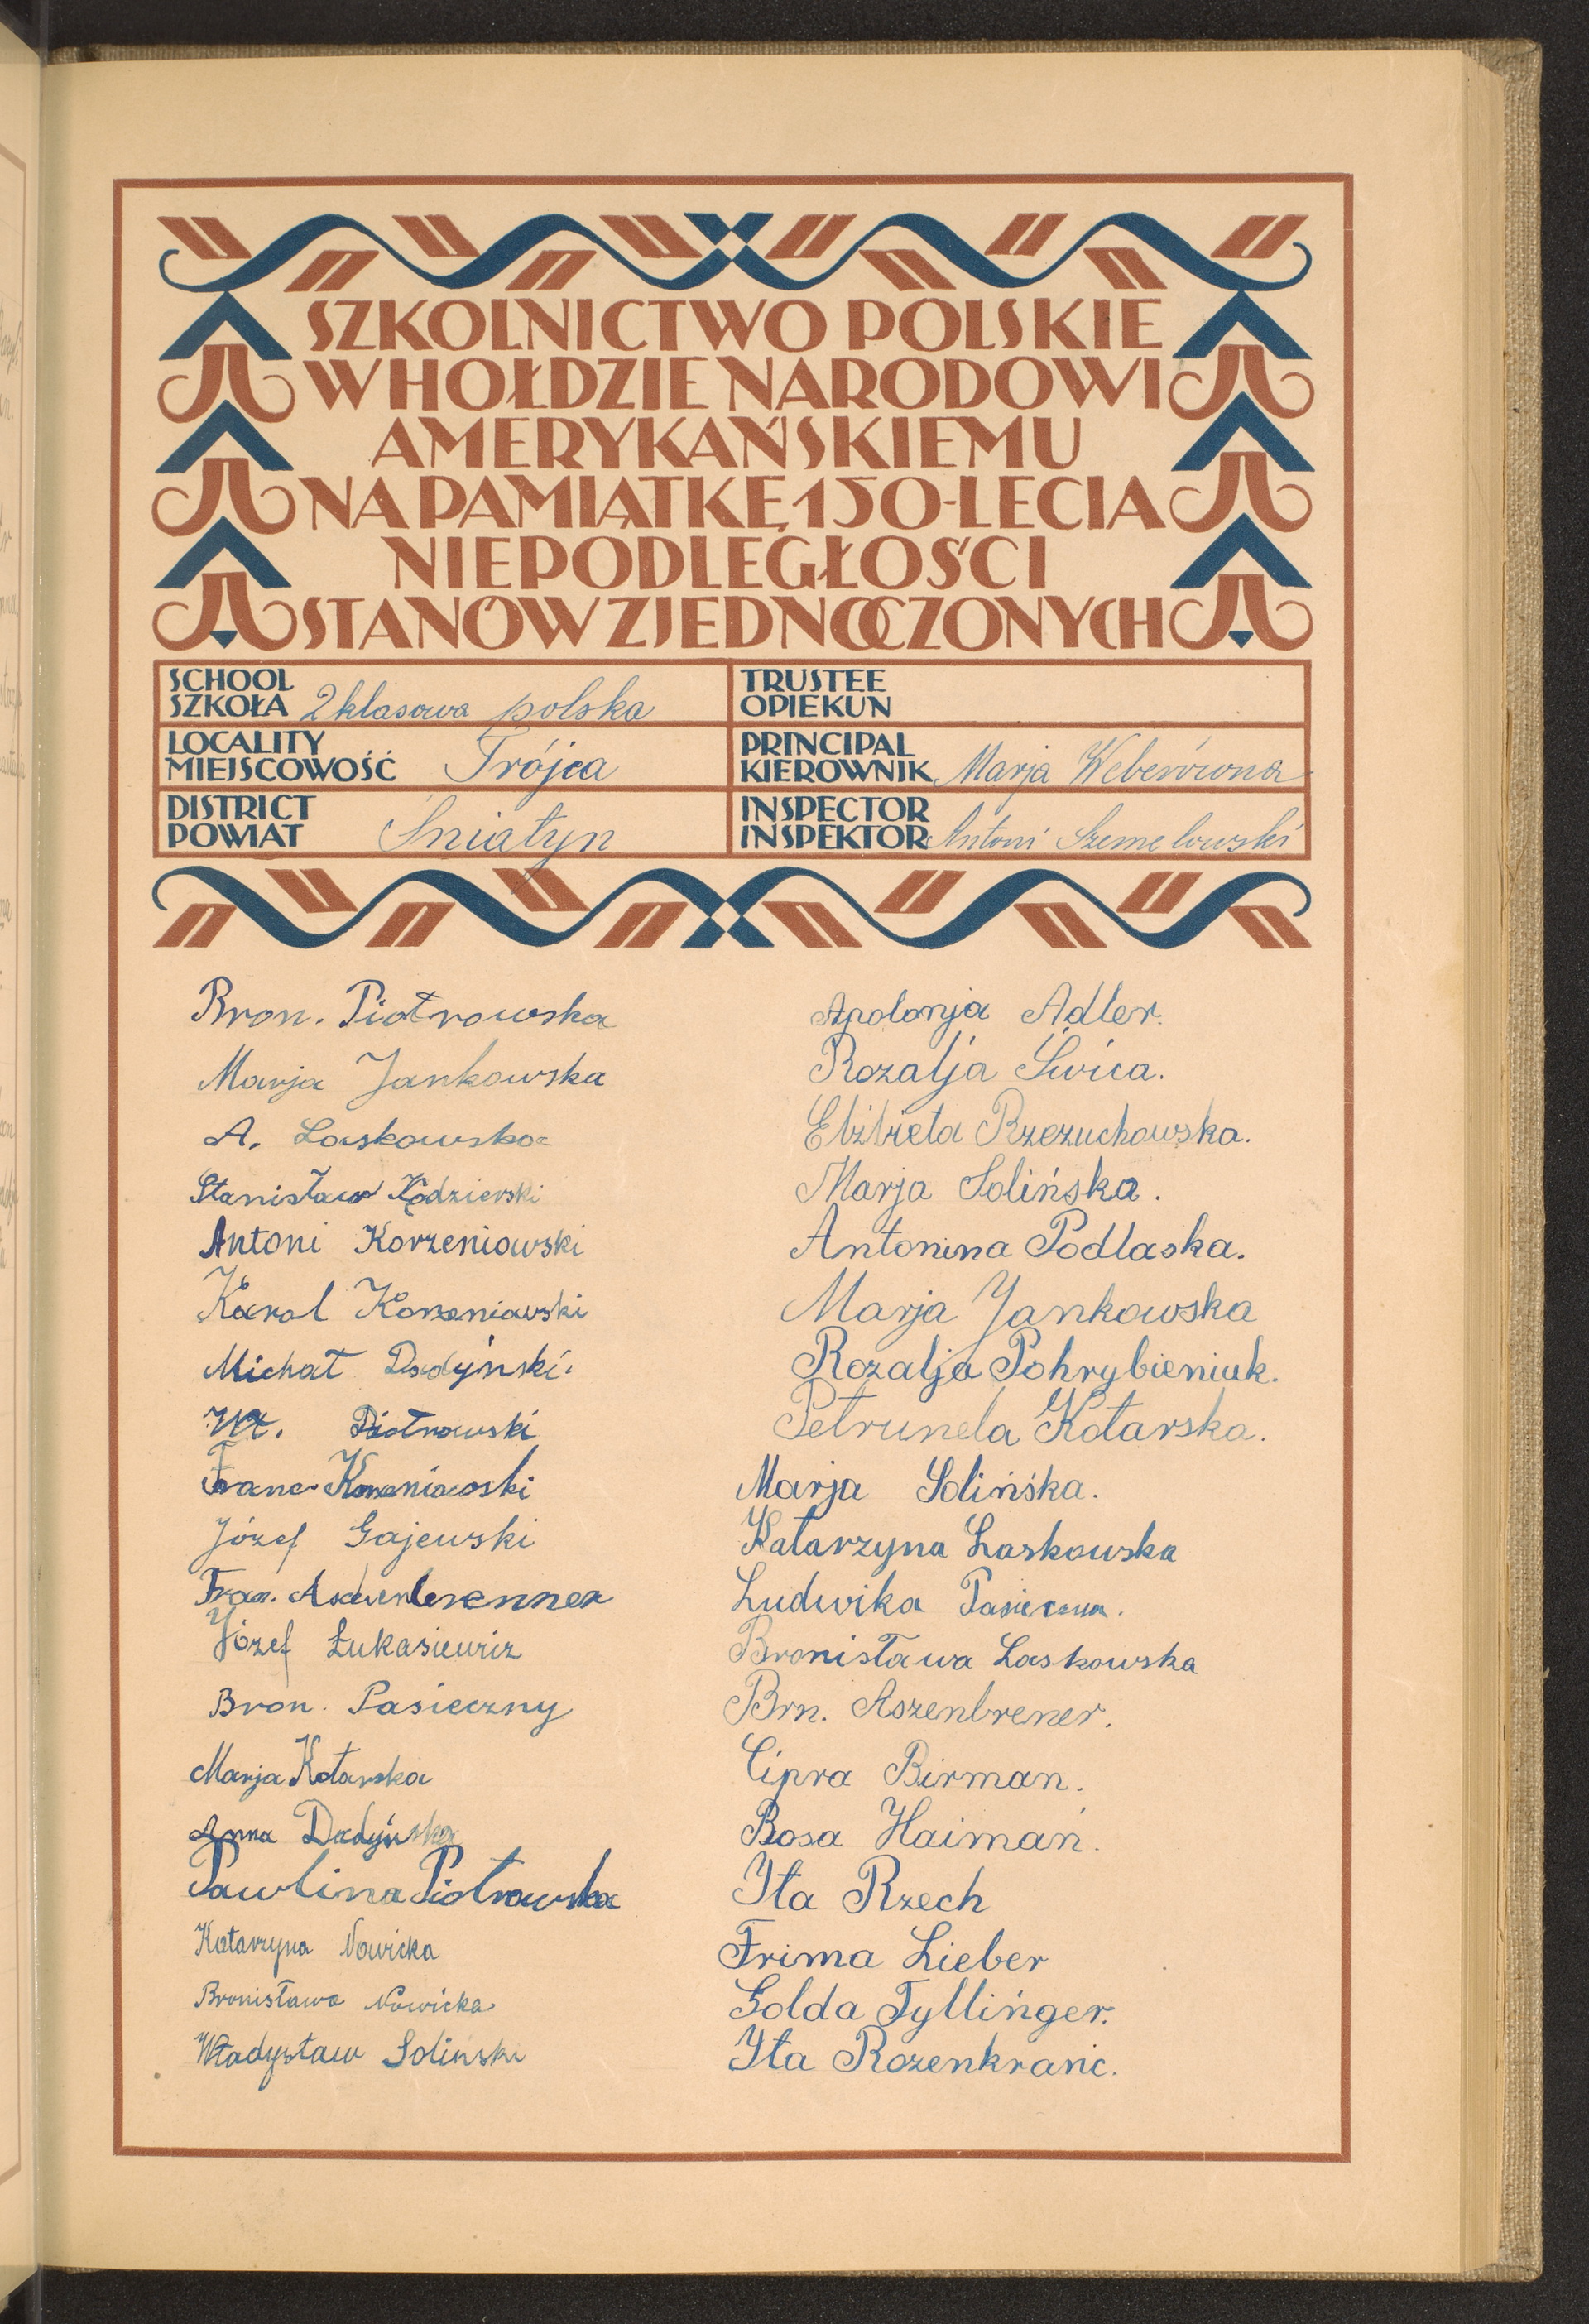 SZKOLNICTWO POLSKIE
W HOŁDZIE NARODOWI
AMERYKAŃSKIEMU
NA PAMIĄTKĘ 150-LECIA
NIEPODLEGŁOŚCI
STANÓW ZJEDNOCZONYCH
SCHOOL
SZKOŁA 2 klasowa polska
TRUSTEE
OPIEKUN
LOCALITY
MIEJSCOWOŚĆ Trójca
PRINCIPAL
KIEROWNIK Marja Weberówna
DISTRICT
POWIAT Śniatyn
INSPECTOR
INSPEKTOR Antoni Szemelowski
Bron. Piotrowska
Marja Jankowska
A. Laskowska
Stanisław Kędzierski
Antoni Korzeniowski
Karol Korzeniowski
Michał Dadyński.
Piotrowski
Franc. Korzeniowski
Józef Gajewski
Fran. Aschenbrenner
Józef Łukasiewicz
Bron. Pasieczny
Marja Kotarska
Anna Dadyńska
Pawlina Piotrowska
Katarzyna Nowicka
Bronisława Nowicka
Władysław Soliński
Apolonja Adler.
Rozalja Świca.
Elżbieta Rzezuchowska.
Marja Solińska.
Antonina Podlaska.
Marja Jankowska
Rozalja Pohrybieniuk.
Petrunela Kotarska.
Marja Solińska.
Katarzyna Laskowska
Ludwika Pasieczna.
Bronisława Laskowska
Brn. Aszenbrener.
Cipra Birman.
Rosa Haiman.
Yta Rzech
Frima Lieber
Golda Tyllinger.
Yta Rozenkranc.